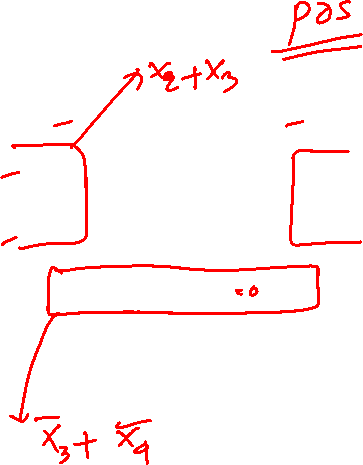 pos
x₂+x₃
=0
x̅₃+x̅₄